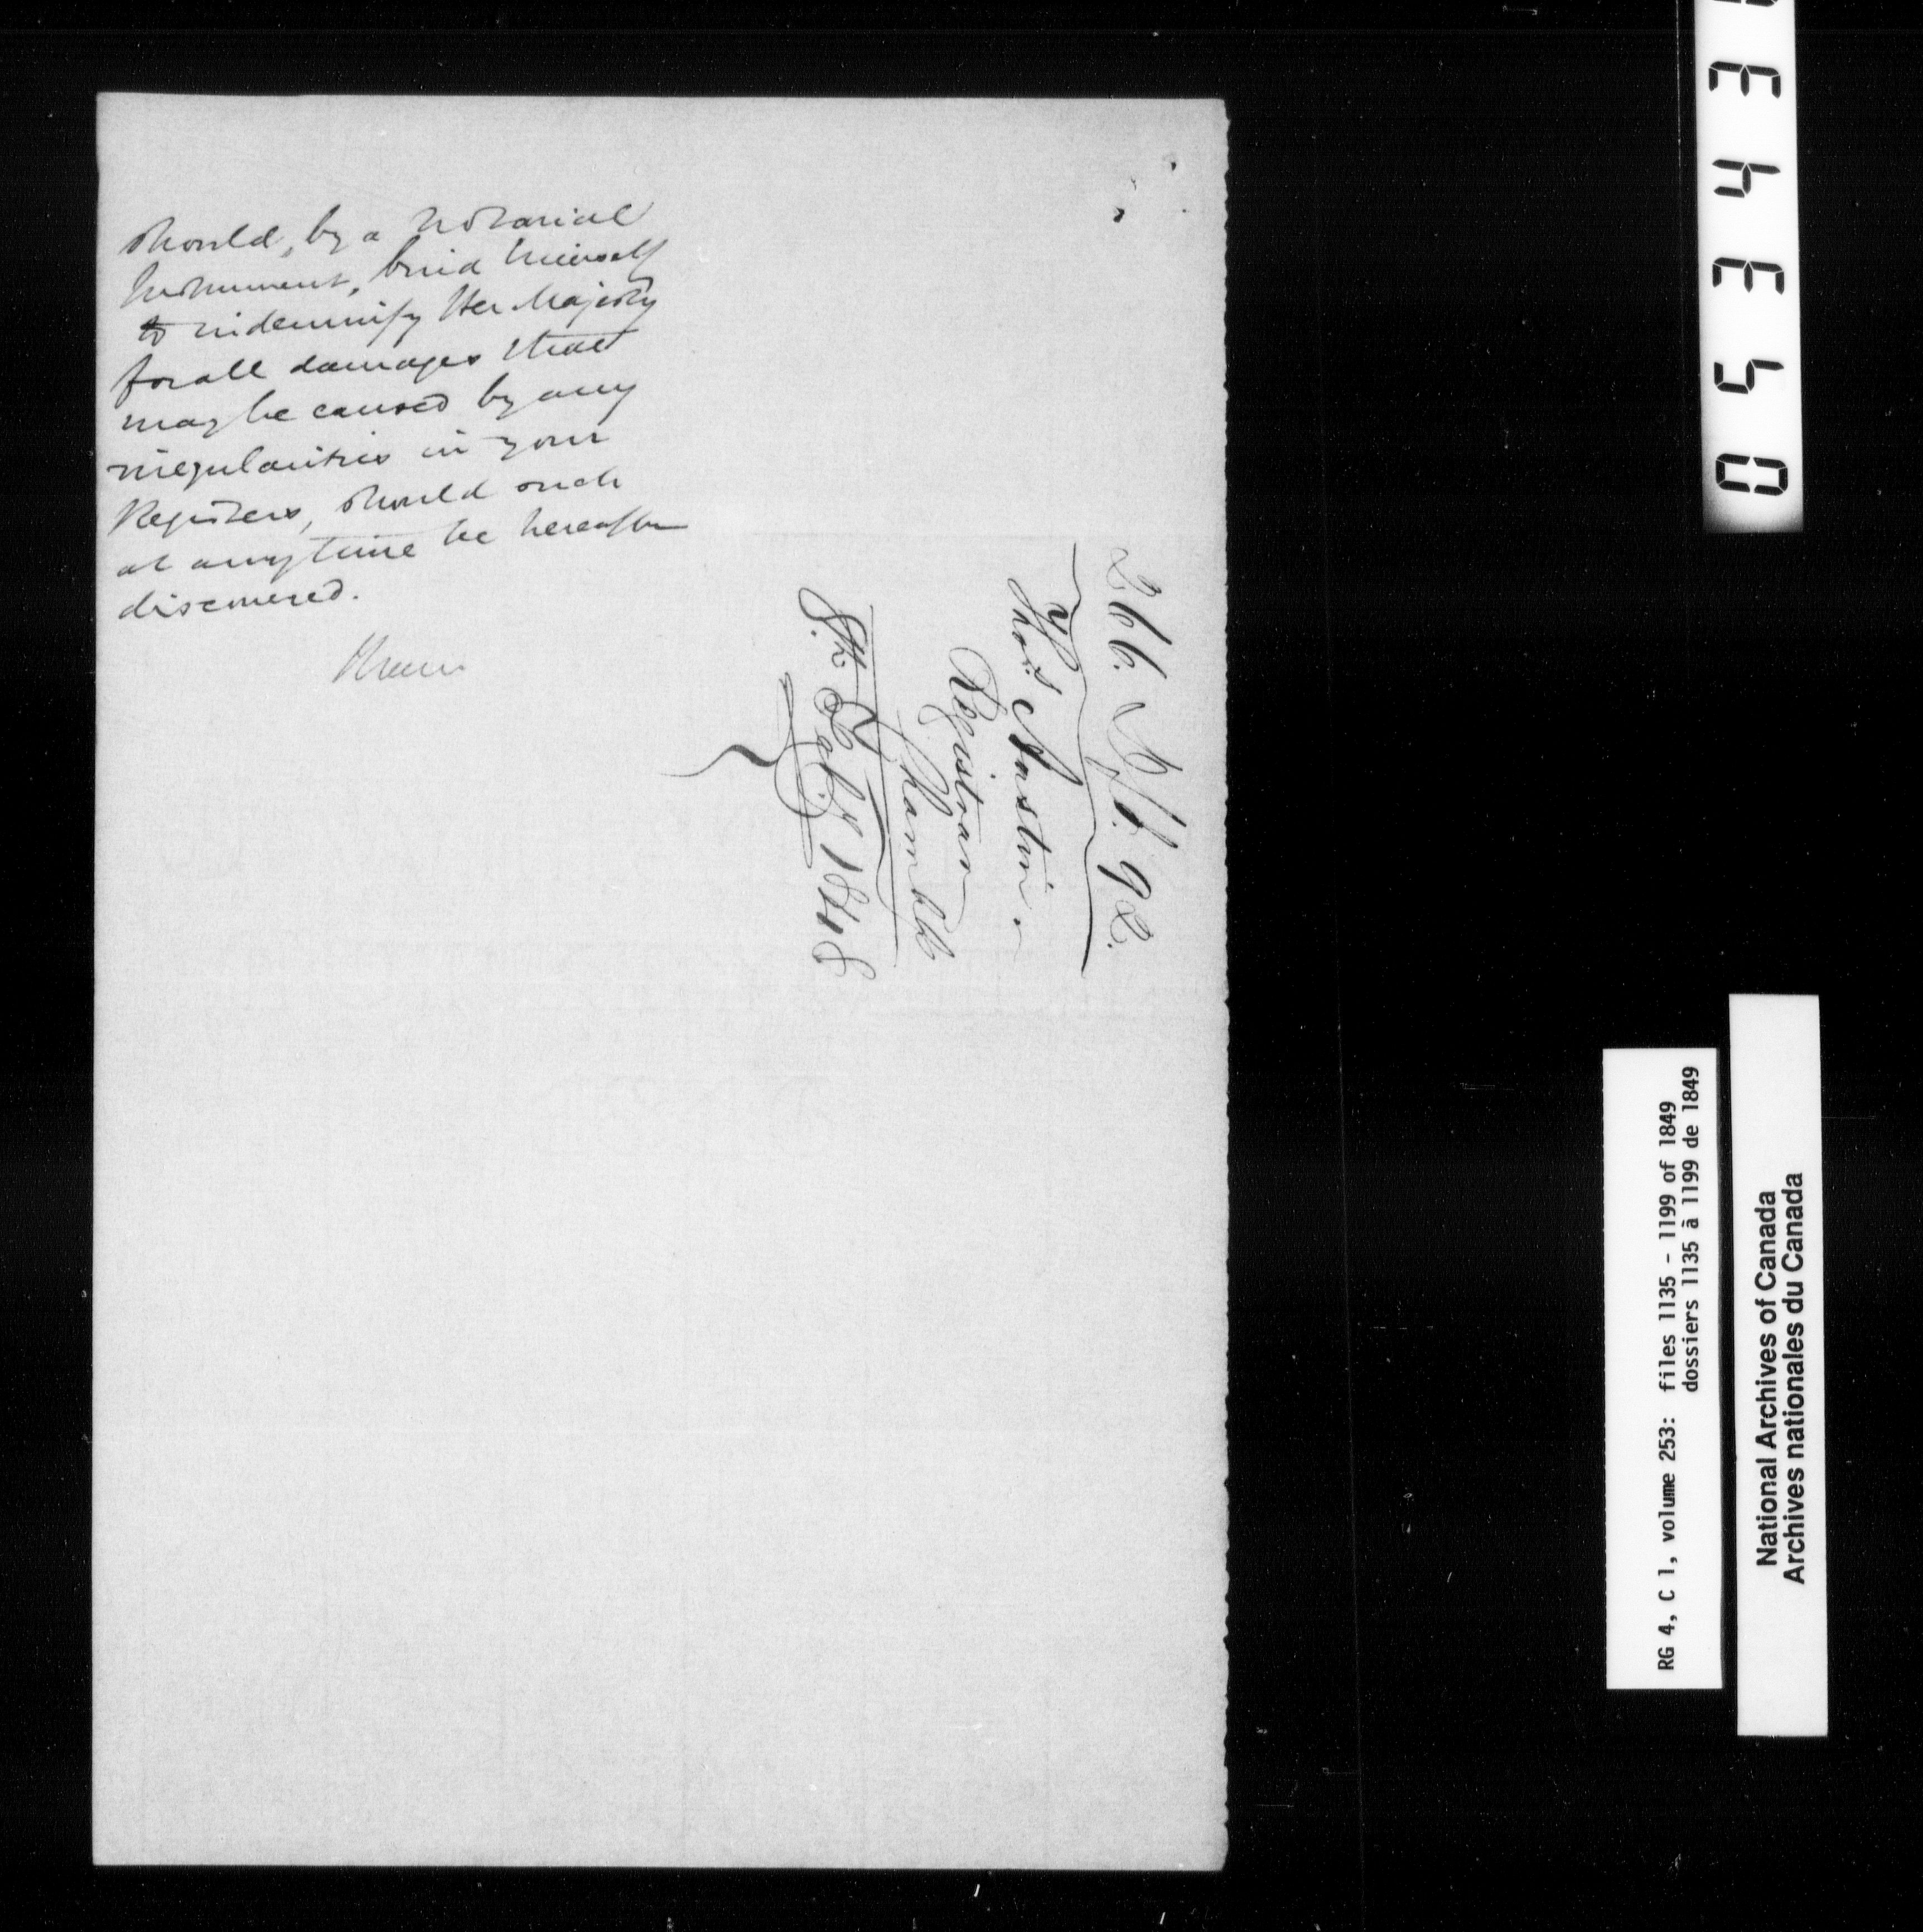 should, by a Notarial
Instrument, bind himself
to indemnify Her Majesty
for all damages that
may be caused by any
irregularities in your
Registers, should such
at any time be hereafter
discovered.
266. 92.
Thos Austin.
Registrar
8th Feby 1848
05343
RG 4, C 1, volume 253: files 1135 - 1199 of 1849
dossiers 1135 à 1199 de 1849
National Archives of Canada
Archives nationales du Canada